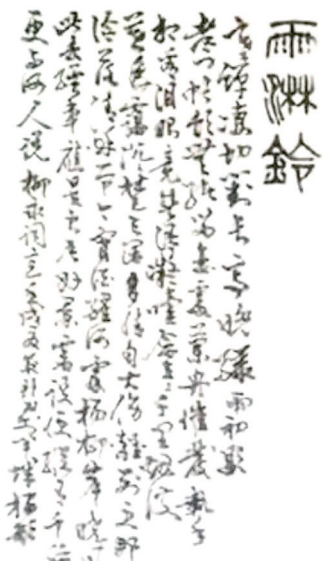 雨淋鈴
寒蟬凄切對長亭晚驟雨初歇
都門帳飲無緒留戀處蘭舟催發執手
相看淚眼竟無語凝噎念去去千里煙波
暮靄沉沉楚天闊多情自古傷離別更那
冷落清秋節今宵酒醒何處楊柳岸曉
此去經年應是良辰好景虛設便縱有千種
更與何人說柳永詞